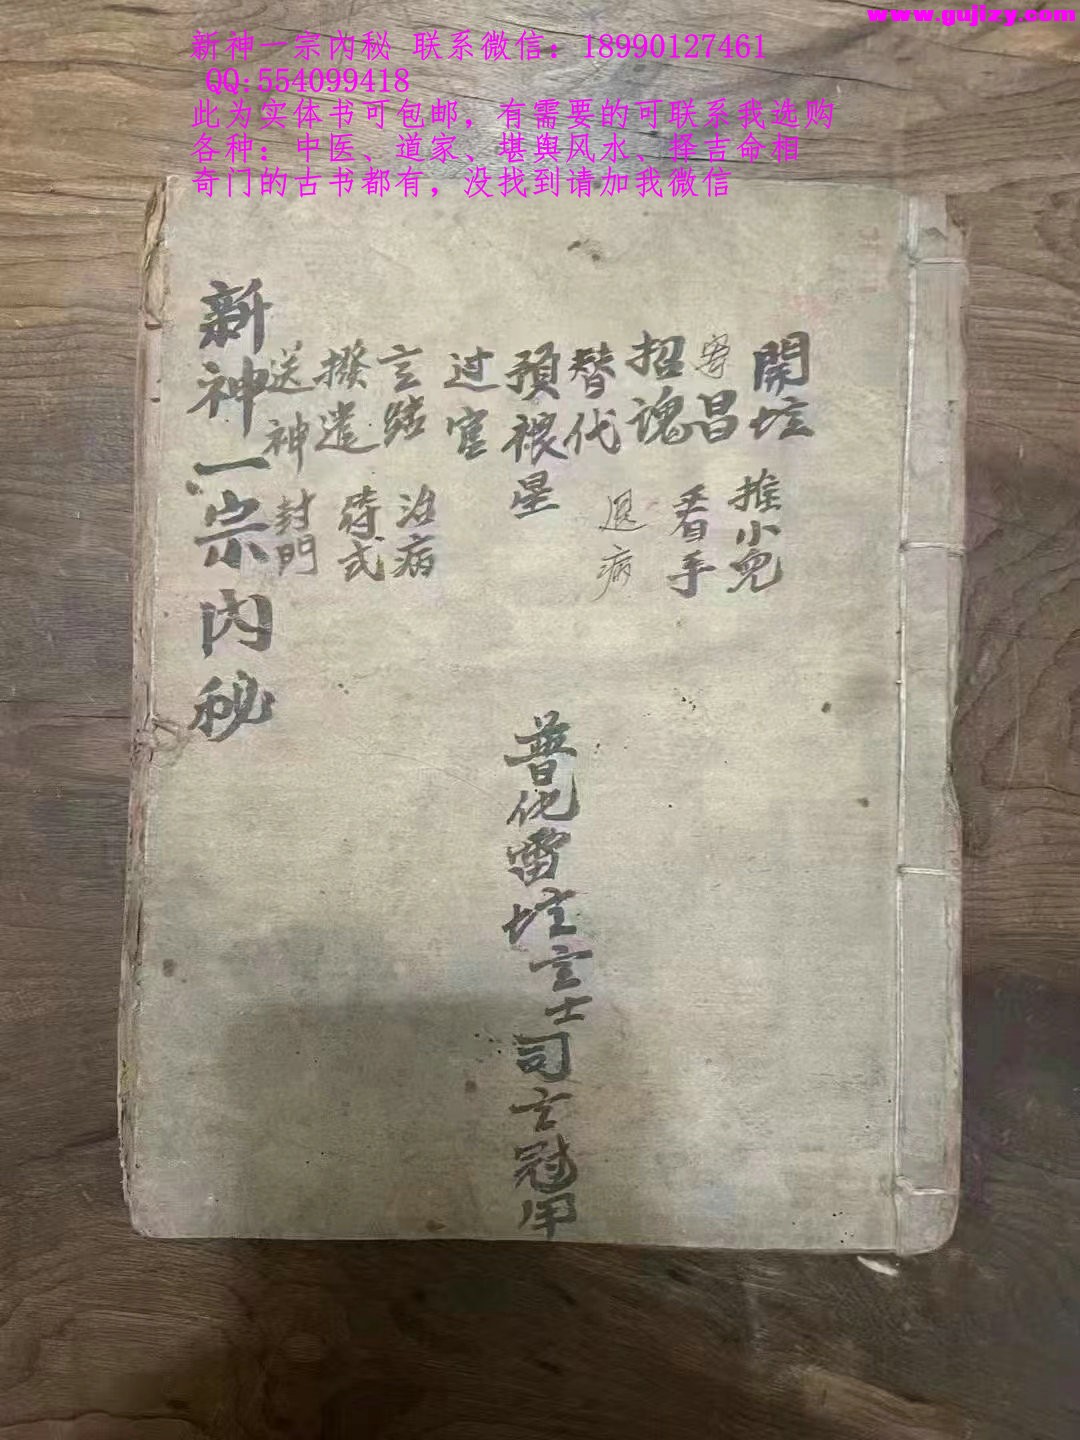 www.gujizy.com
新神一宗內秘 联系微信：18990127461
QQ:554099418
此为实体书可包邮，有需要的可联系我选购
各种：中医、道家、堪舆风水、择吉命相
奇门的古书都有，没找到请加我微信
開坛 推小兒
昌 看手
招魂
替代 退病
預禳星
过官
玄結 治病
撥遣 待式
送神 封門
新神一宗內秘
普化雷坛玄士司玄冠甲